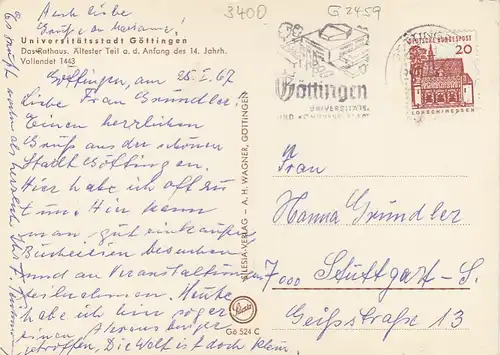 Auch liebe
Grüße an Marianne!
3400
G 2459
Universitätsstadt Göttingen
Das Rathaus. Ältester Teil a. d. Anfang des 14. Jahrh.
Vollendet 1443
Göttingen, am 25. I. 67
Liebe Frau Gründler!
Einen herrlichen
Gruß aus der schönen
Stadt Göttingen.
Hier habe ich oft zu
tun. Hier kann
man gut einkaufen
Büchereien besuchen
und an Veranstaltungen
teilnehmen. Heute
habe ich hier sogar
einen
getroffen. Die Welt ist doch klein.
Es grüßt
herzlich Ihr
SILESIA-VERLAG – A. H. WAGNER, GÖTTINGEN
Silesia
Gö 524 C
Göttingen
UNIVERSITÄTS-
UND KONGRESS-STADT
DEUTSCHE BUNDESPOST
20
LORSCH/HESSEN
Frau
Hanna Gründler
7000 Stuttgart-S.
Geißstraße 13